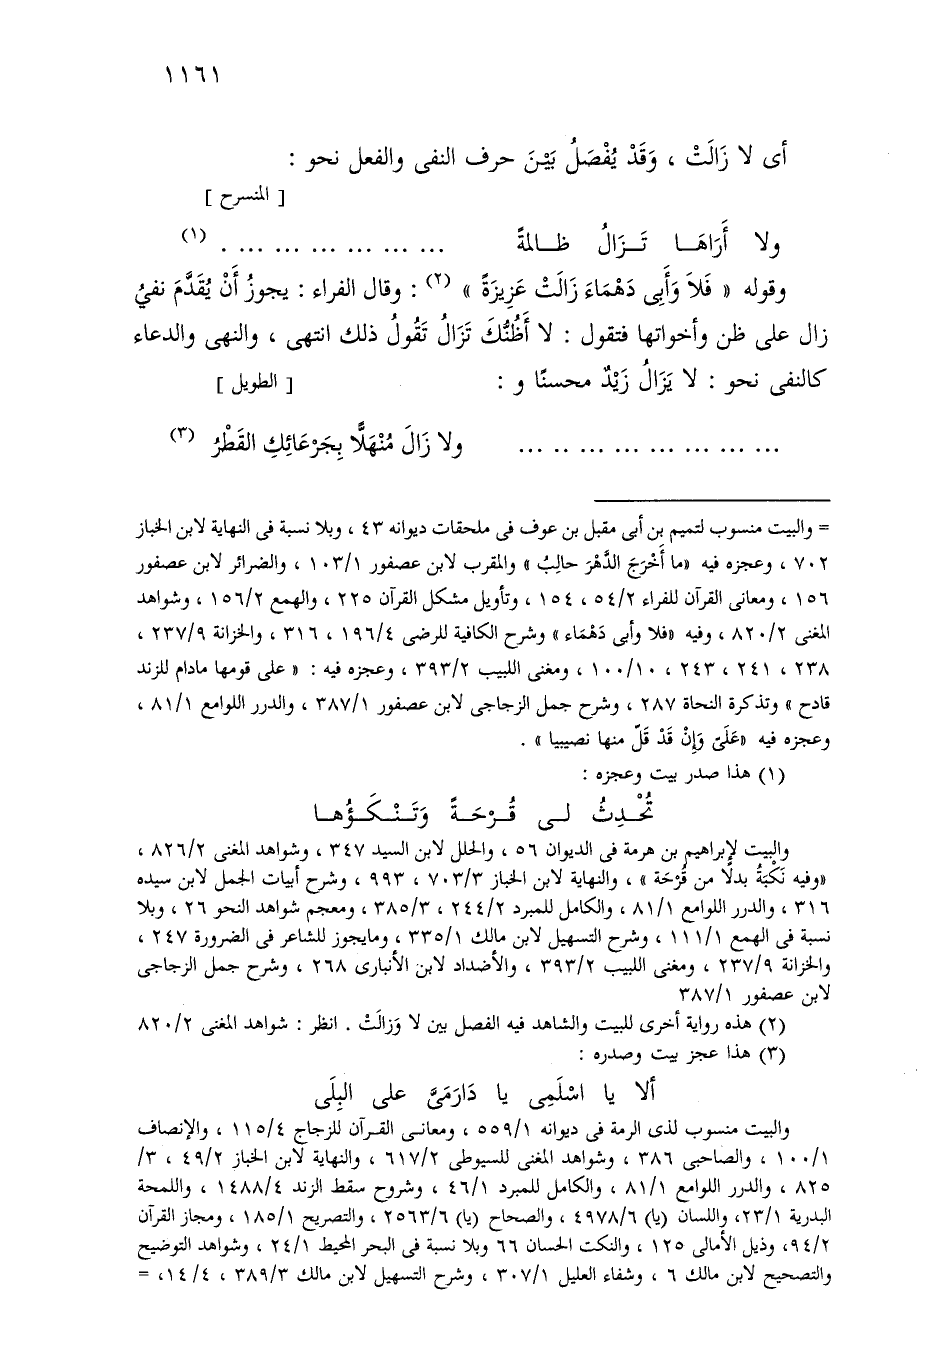 ١١٦١
أى لا زَالَتْ ، وَقَدْ يُفْصَلُ بَيْنَ حرف النفى والفعل نحو :
[ المنسرح ]
ولا أَرَاهَا تَزَالُ ظالمةً ... ... ... ... ... ... . (١)
وقوله « فَلاَ وَأَبِى دَهْمَاءَ زَالَتْ عَزِيزَةً » (٢) : وقال الفراء : يجوزُ أَنْ يُقَدَّمَ نفيُ
زال على ظن وأخواتها فتقول : لا أَظُنُّكَ تَزَالُ تَقُولُ ذلك انتهى ، والنهى والدعاء
كالنفى نحو : لا يَزَالُ زَيْدٌ محسنًا و : [ الطويل ]
... ... ... ... ... .. ... ... ولا زَالَ مُنْهَلًّا بِجَرْعَائِكِ القَطْرُ (٣)
= والبيت منسوب لتميم بن أبى مقبل بن عوف فى ملحقات ديوانه ٤٣ ، وبلا نسبة فى النهاية لابن الخباز
٧٠٢ ، وعجزه فيه «ما أَخْرَجَ الدَّهْرَ حالِبُ » والمقرب لابن عصفور ١٠٣/١ ، والضرائر لابن عصفور
١٥٦ ، ومعانى القرآن للفراء ٥٤/٢ ، ١٥٤ ، وتأويل مشكل القرآن ٢٢٥ ، والهمع ١٥٦/٢ ، وشواهد
المغنى ٨٢٠/٢ ، وفيه «فلا وأبى دَهْمَاء » وشرح الكافية للرضى ١٩٦/٤ ، ٣١٦ ، والخزانة ٢٣٧/٩ ،
٢٣٨ ، ٢٤١ ، ٢٤٣ ، ١٠٠/١٠ ، ومغنى اللبيب ٣٩٣/٢ ، وعجزه فيه : « على قومها مادام للزند
قادح » وتذكرة النحاة ٢٨٧ ، وشرح جمل الزجاجى لابن عصفور ٣٨٧/١ ، والدرر اللوامع ٨١/١ ،
وعجزه فيه «عَلَىّ وَإِنْ قَدْ قَلّ منها نصيبيا » .
(١) هذا صدر بيت وعجزه :
تُحْدِثُ لى قُرْحَةً وَتَنْكَؤُها
والبيت لإبراهيم بن هرمة فى الديوان ٥٦ ، والحلل لابن السيد ٣٤٧ ، وشواهد المغنى ٨٢٦/٢ ،
«وفيه نَكْبَةُ بدلًا من قُرْحَة » ، والنهاية لابن الخباز ٧٠٣/٣ ، ٩٩٣ ، وشرح أبيات الجمل لابن سيده
٣١٦ ، والدرر اللوامع ٨١/١ ، والكامل للمبرد ٢٤٤/٢ ، ٣٨٥/٣ ، ومعجم شواهد النحو ٢٦ ، وبلا
نسبة فى الهمع ١١١/١ ، وشرح التسهيل لابن مالك ٣٣٥/١ ، ومايجوز للشاعر فى الضرورة ٢٤٧ ،
والخزانة ٢٣٧/٩ ، ومغنى اللبيب ٣٩٣/٢ ، والأضداد لابن الأنبارى ٢٦٨ ، وشرح جمل الزجاجى
لابن عصفور ٣٨٧/١
(٢) هذه رواية أخرى للبيت والشاهد فيه الفصل بين لا وَزالَتْ . انظر : شواهد المغنى ٨٢٠/٢
(٣) هذا عجز بيت وصدره :
ألا يا اسْلَمِى يا دَارَمَىَّ على البِلَى
والبيت منسوب لذى الرمة فى ديوانه ٥٥٩/١ ، ومعانى القرآن للزجاج ١١٥/٤ ، والإنصاف
١٠٠/١ ، والصاحبى ٣٨٦ ، وشواهد المغنى للسيوطى ٦١٧/٢ ، والنهاية لابن الخباز ٤٩/٢ ، ٣/
٨٢٥ ، والدرر اللوامع ٨١/١ ، والكامل للمبرد ٤٦/١ ، وشروح سقط الزند ١٤٨٨/٤ ، واللمحة
البدرية ٢٣/١، واللسان (يا) ٤٩٧٨/٦ ، والصحاح (يا) ٢٥٦٣/٦ ، والتصريح ١٨٥/١ ، ومجاز القرآن
٩٤/٢، وذيل الأمالى ١٢٥ ، والنكت الحسان ٦٦ وبلا نسبة فى البحر المحيط ٢٤/١ ، وشواهد التوضيح
والتصحيح لابن مالك ٦ ، وشفاء العليل ٣٠٧/١ ، وشرح التسهيل لابن مالك ٣٨٩/٣ ، ١٤/٤، =